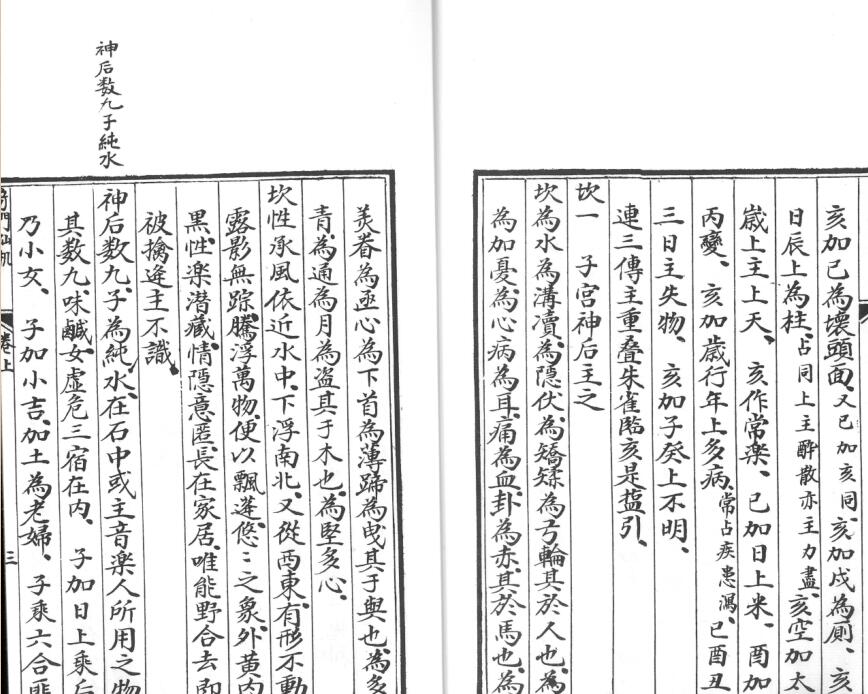 亥加巳為壞頭面、又巳加亥同、亥加戌為厠、亥
日辰上為柱、占同上主酔散亦主力盡、亥空加太
歳上主上天、亥作常楽、已加日上米、酉加
丙變、亥加歳行年上多病、常占疾患瀉、已酉丑
三日主失物、亥加子癸上不明、
連三傳主重叠朱雀臨亥是搕引、
坎一 子宮神后主之
坎為水、為溝瀆、為隠伏、為矯輮、為弓輪、其於人也、為
為加憂、為心病、為耳痛、為血卦、為赤、其於馬也、為
美脊、為亟心、為下首、為薄蹄、為曳、其于輿也、為多
青、為通、為月、為盗、其于木也、為堅多心、
坎性承風依近水中、下浮南北、又從西東、有形不動
露影無踪、騰浮萬物、便以飄遙、悠〻之象、外黄内
黒、性楽潜藏、情隠意匿、長在家居、唯能野合去即
被擒逄主不識、
神后数九子純水
神后数九、子為純水、在石中或主音楽人所用之物
其数九、味鹹、女虚危三宿在内、子加日上乘后
乃小女、子加小吉、加土為老婦、子乘六合匪
卷上
三